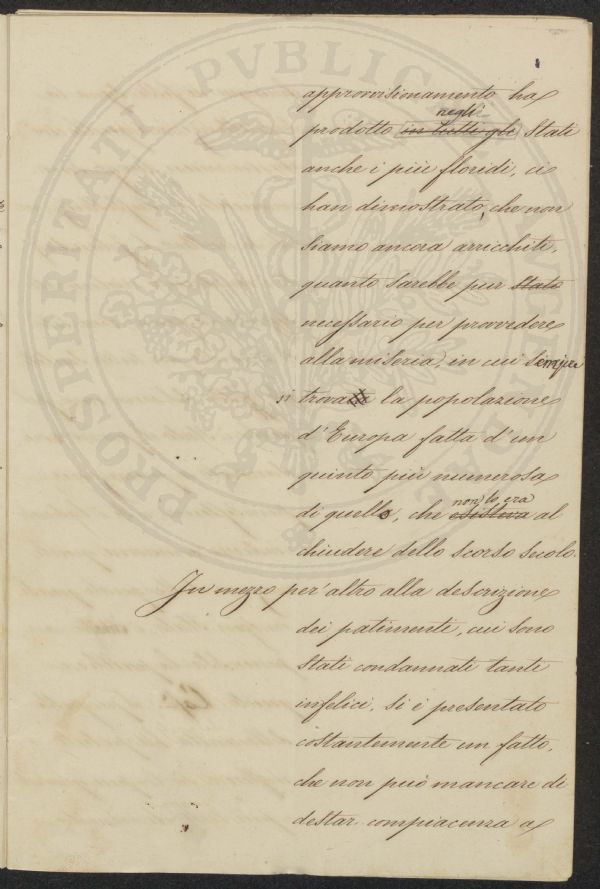 approvvisionamento ha
negli
prodotto in tutti gli Stati
anche i più floridi, ci
han dimostrato, che non
siamo ancora arricchiti,
quanto sarebbe pur stato
necessario per provvedere
alla miseria, in cui sempre
si trova la popolazione
d'Europa fatta d'un
quinto più numerosa
non lo era
di quello, che esisteva al
chiudere dello scorso secolo.
In mezzo per altro alla descrizione
dei patimenti, cui sono
stati condannati tanti
infelici, si è presentato
costantemente un fatto,
che non può mancare di
destar compiacenza a
PROSPERITATI PVBLICAE